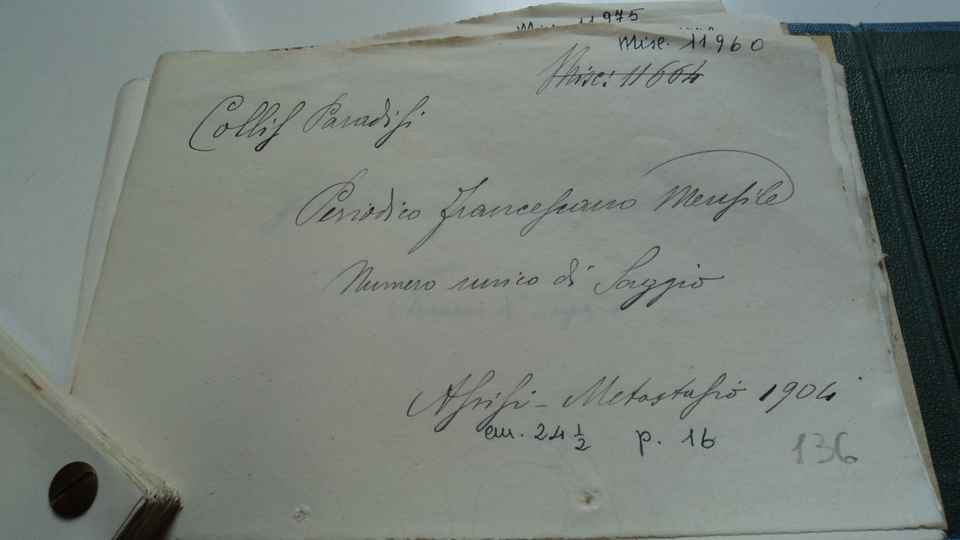 Misc. 11975
Misc. 11960
Misc. 11664
Collis Paradisi
Periodico francescano Mensile
Numero unico di Saggio
Assisi - Metastasio 1904
cm. 24 1/2 p. 16
136